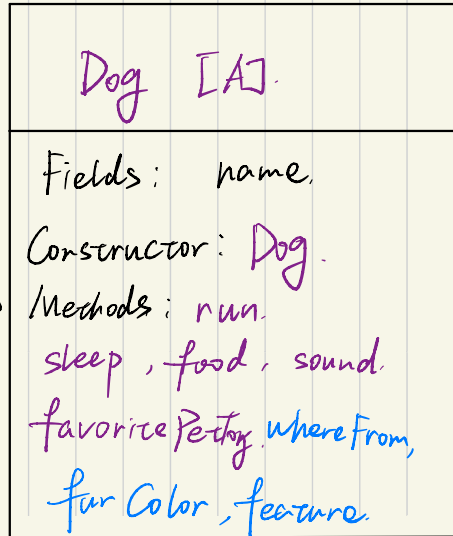 Dog [A].
Fields: name.
Constructor: Dog.
Methods: run.
sleep, food, sound.
favoritePetToy. whereFrom,
fur Color, feature.